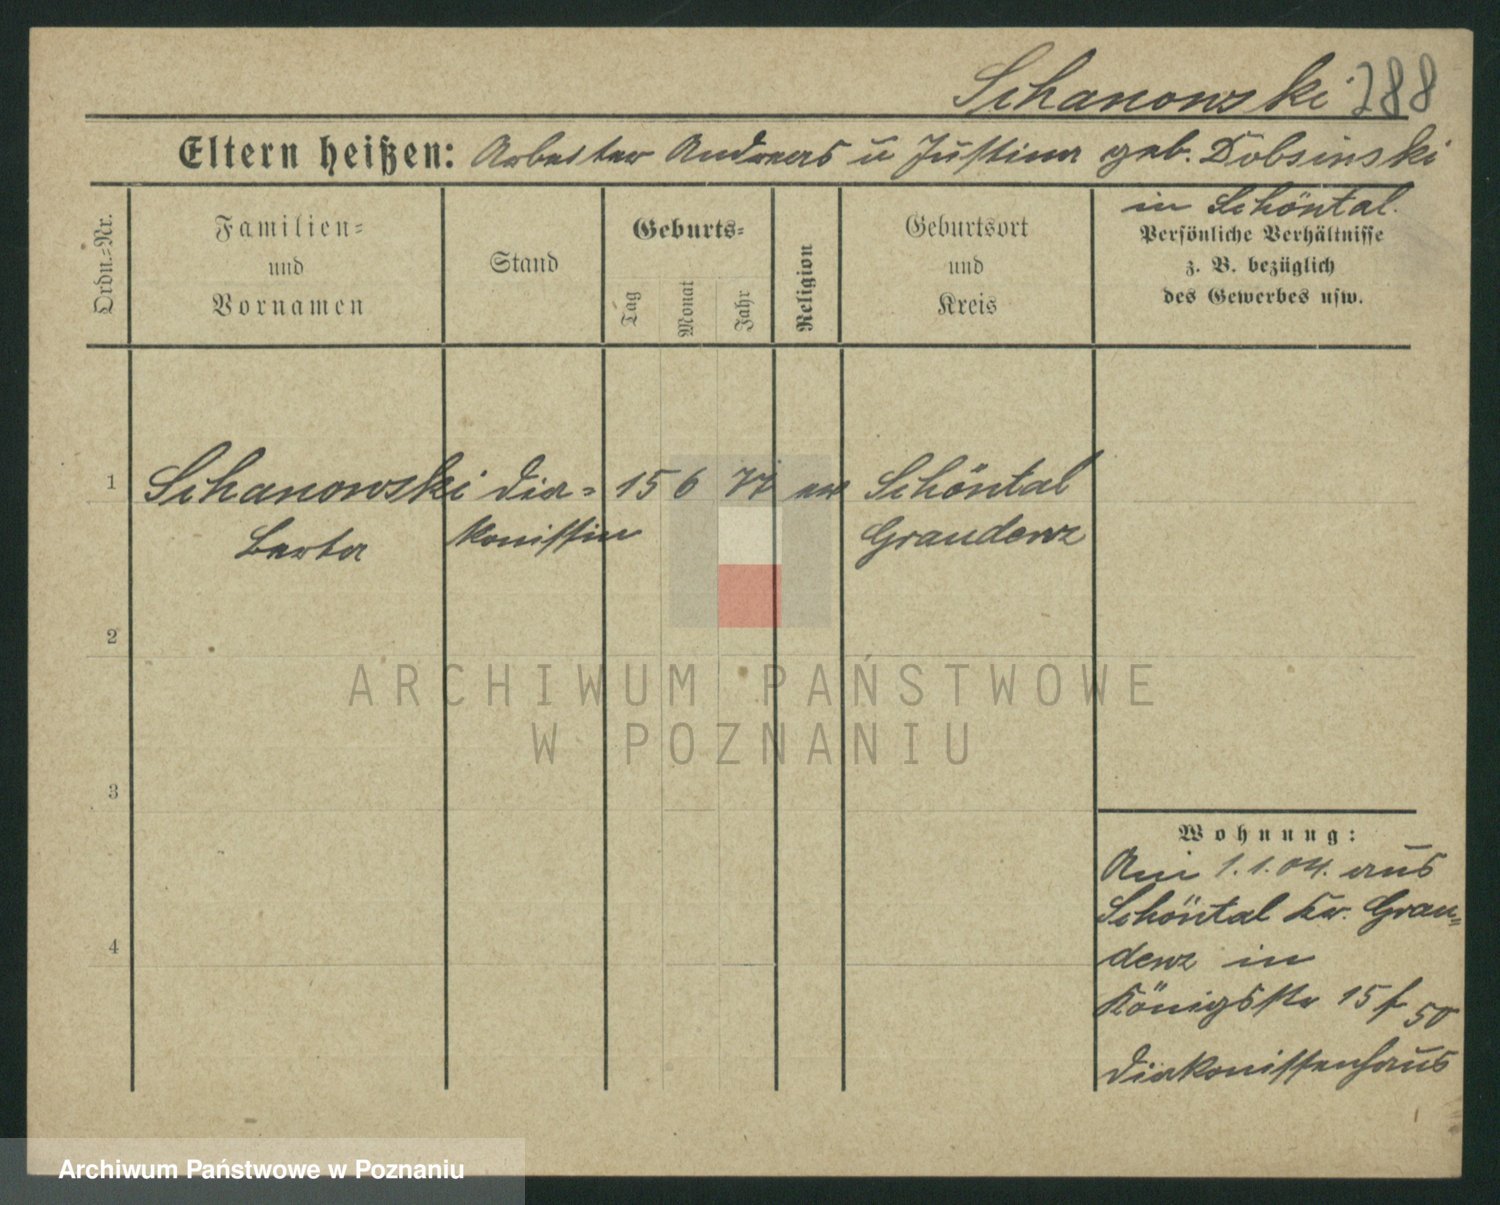 Schanowski 288
Eltern heißen: Arbeiter Andreas u Justina geb. Dobsinski
in Schöntal.
Ordn.=Nr.
Familien=
und
Vornamen
Stand
Geburts=
Tag
Monat
Jahr
Religion
Geburtsort
und
Kreis
Persönliche Verhältnisse
z. B. bezüglich
des Gewerbes usw.
1 Schanowski Dia= 15 6 77 ev Schöntal
Berta konissin Graudenz
2
3
4
ARCHIWUM PAŃSTWOWE
W POZNANIU
Wohnung:
Am 1.1.04. aus
Schöntal Kr. Grau=
denz in
Königstr 15 f 50
Diakonissenhaus
Archiwum Państwowe w Poznaniu